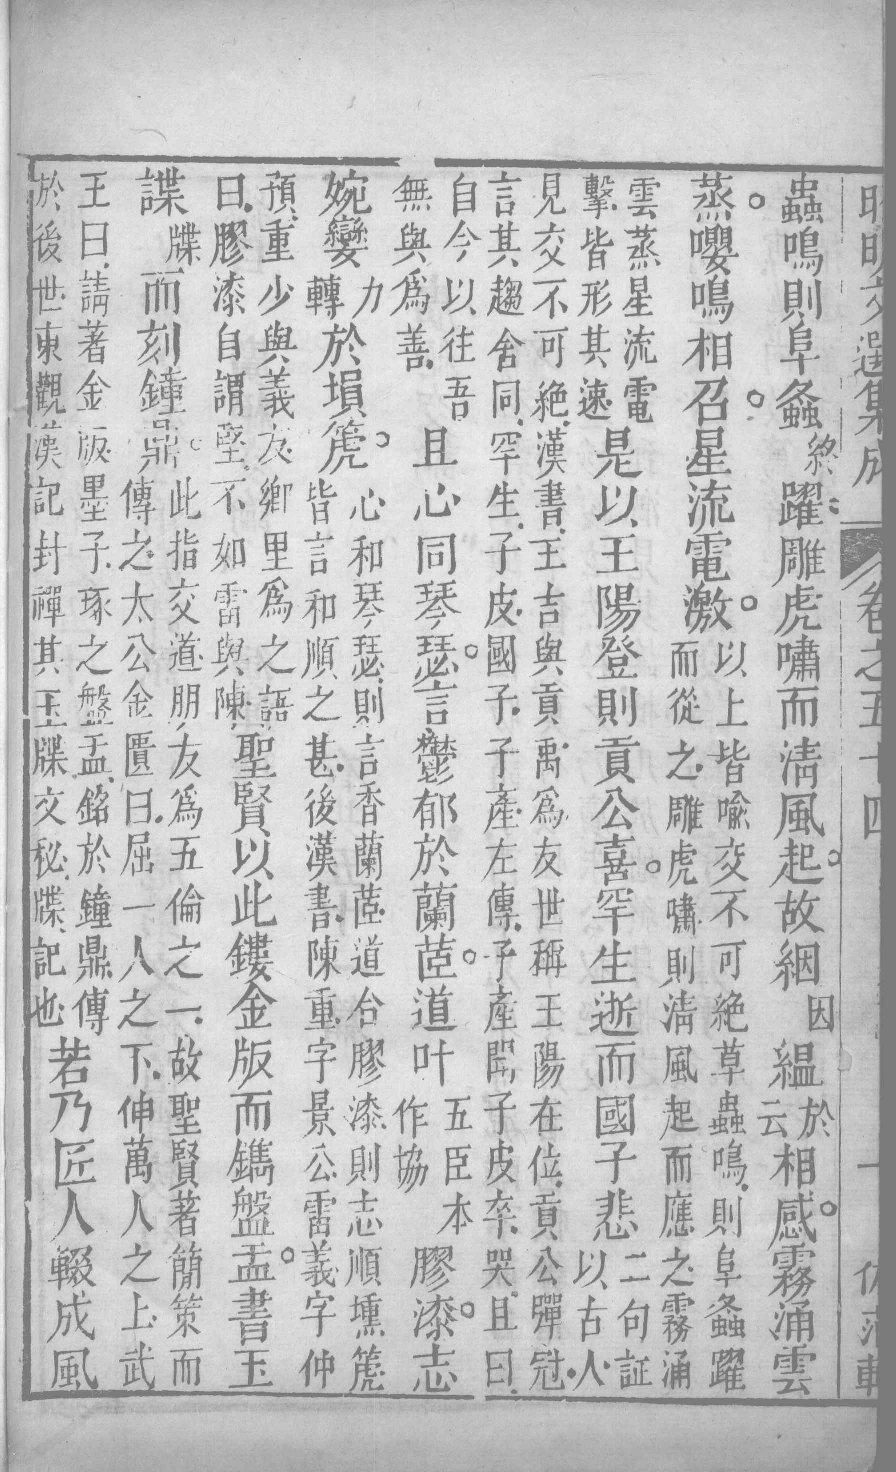 昭明文選集成　卷之五十四
蟲鳴則阜螽終躍雕虎嘯而淸風起故絪因縕於云相感霧涌雲
蒸嚶鳴相召星流電激以上皆喻交不可絶草蟲鳴則阜螽躍
而從之雕虎嘯則清風起而應之霧涌
雲蒸星流電
擊皆形其速是以王陽登則貢公喜罕生逝而國子悲二句証
以古人
見交不可絶漢書王吉與貢禹為友世稱王陽在位貢公彈冠
言其趨舍同罕生子皮國子子產左傳子產聞子皮卒哭且曰
自今以往吾
無與為善且心同琴瑟言鬱郁於蘭茝道叶五臣本
作協膠漆志
婉孌力
轉於塤箎心和琴瑟則言香蘭茝道合膠漆則志順壎箎
皆言和順之甚後漢書陳重字景公雷義字仲
預重少與義友鄉里為之語
曰膠漆自謂堅不如雷與陳聖賢以此鏤金版而鐫盤盂書玉
諜牒而刻鐘鼎此指交道朋友為五倫之一故聖賢著簡策而
傳之太公金匱曰屈一人之下伸萬人之上武
王曰請著金版墨子琢之盤盂銘於鐘鼎傳
於後世東觀漢記封禪其玉牒文秘牒記也若乃匠人輟成風